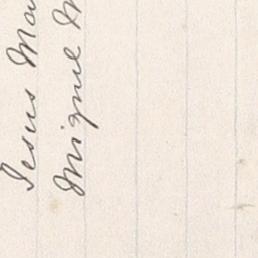 Jesus
Miguel